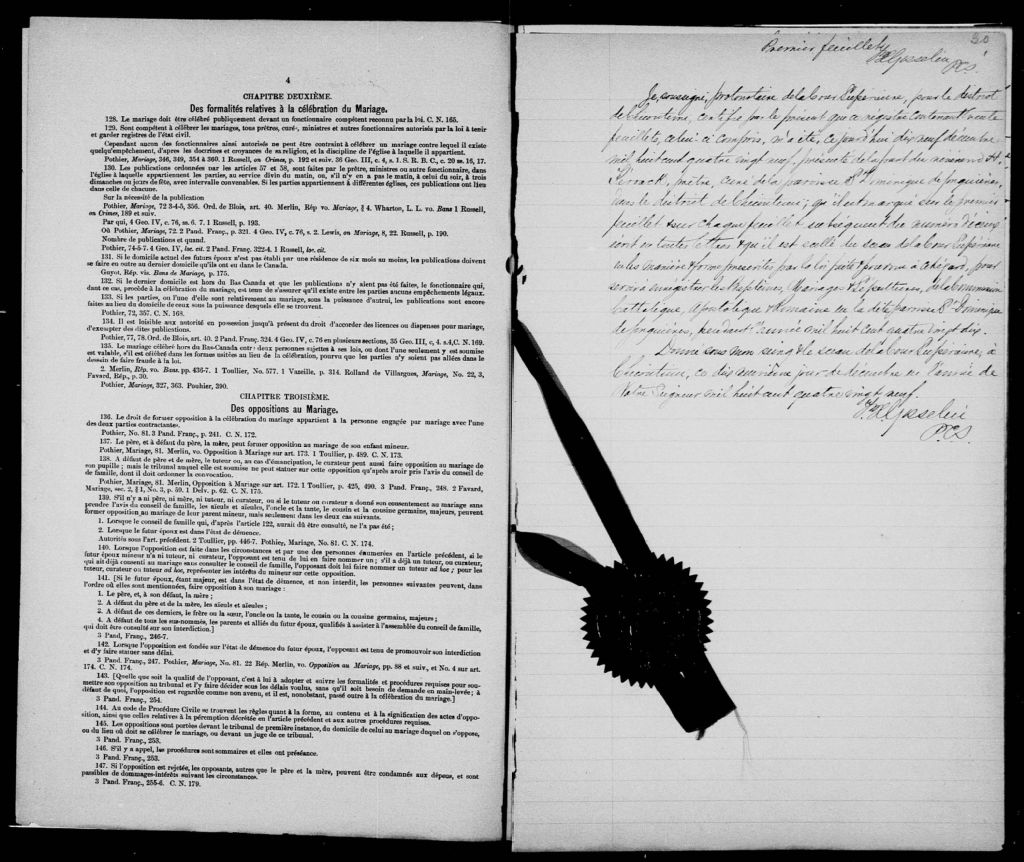 4
CHAPITRE DEUXIÈME.
Des formalités relatives à la célébration du Mariage.
128. Le mariage doit être célébré publiquement devant un fonctionnaire compétent reconnu par la loi. C. N. 165.
129. Sont compétents à célébrer les mariages, tous prêtres, curés, ministres et autres fonctionnaires autorisés par la loi à tenir
et garder registres de l'état civil.
Cependant aucun des fonctionnaires ainsi autorisés ne peut être contraint à célébrer un mariage contre lequel il existe
quelqu'empêchement, d'après les doctrines et croyances de sa religion, et la discipline de l'église à laquelle il appartient.
Pothier, Mariage, 346, 349, 354 à 360. 1 Russell, on Crimes, p. 192 et suiv. 36 Geo. III, c. 4, s. 1. S. R. B. C., c. 20 ss. 16, 17.
130. Les publications ordonnées par les articles 57 et 58, sont faites par le prêtre, ministre ou autre fonctionnaire, dans
l'église à laquelle appartiennent les parties, au service divin du matin, ou, s'il n'y en a pas le matin, à celui du soir, à trois
dimanches ou jours de fête, avec intervalle convenables. Si les parties appartiennent à différentes églises, ces publications ont lieu
dans celle de chacune.
Sur la nécessité de la publication
Pothier, Mariage, 72 3-4-5, 356. Ord. de Blois, art. 40. Merlin, Rép vo. Mariage, § 4. Wharton, L. L. vo. Bans 1 Russell,
on Crimes, 189 et suiv.
Par qui, 4 Geo. IV, c. 76, ss. 6. 7. 1 Russell, p. 193.
Où Pothier, Mariage, 72. 2 Pand. Franç., p. 321. 4 Geo. IV, c. 76, s. 2. Lewis, on Mariage, 8, 22. Russell, p. 190.
Nombre de publications et quand.
Pothier, 74-5-7. 4 Geo. IV, loc. cit. 2 Pand. Franç. 322-4. 1 Russell, loc. cit.
131. Si le domicile actuel des futurs époux n'est pas établi par une résidence de six mois au moins, les publications doivent
se faire en outre au dernier domicile qu'ils ont eu dans le Canada.
Guyot, Rép. vis. Bans de Mariage, p. 175.
132. Si le dernier domicile est hors du Bas-Canada et que les publications n'y aient pas été faites, le fonctionnaire qui,
dant ce cas, procède à la célébration du mariage, est tenu de s'assurer qu'il existe entre les parties aucuns empêchements légaux.
133. Si les parties, ou l'une d'elle sont relativement au mariage, sous la puissance d'autrui, les publications sont encore
faites au lieu du domicile de ceux sous la puissance desquels elle se trouvent.
Pothier, 72, 357. C. N. 168.
134. Il est loisible aux autorité en possession jusqu'à présent du droit d'accorder les licences ou dispenses pour mariage,
d'exempter des dites publications.
Pothier, 77, 78. Ord. de Blois, art. 40. 2 Pand. Franç. 324. 4 Geo. IV, c. 76 en plusieurs sections, 35 Geo. III, c, 4. s.4,C. N. 169.
135. Le mariage célébré hors du Bas-Canada entre deux personnes sujettes à ses lois, ou dont l'une seulement y est soumise
est valable, s'il est célébré dans les formes usitées au lieu de la célébration, pourvu que les parties n'y soient pas allées dans le
dessein de faire fraude à la loi.
2. Merlin, Rép. vo. Bans. pp. 436-7. 1 Toullier, No. 577. 1 Vazeille. p. 314. Rolland de Villargues, Mariage, No. 22, 3,
Favard, Rép., p. 30.
Pothier, Mariage, 327, 363. Pouhier, 390.
CHAPITRE TROISIÈME.
Des oppositions au Mariage.
136. Le droit de former opposition à la célébration du mariage appartient à la personne engagée par mariage avec l'une
des deux parties contractantes.
Pothier, No. 81. 3 Pand. Franç., p. 241. C. N. 172.
137. Le père, et à défaut du père, la mère, peut former opposition au mariage de son enfant mineur.
Pothier, Mariage, 81. Merlin, vo. Opposition à Mariage sur art. 173. 1 Toullier, p. 489. C. N. 173.
138. A défaut de père et de mère, le tuteur ou, au cas d'émancipation, le curateur peut aussi faire opposition au mariage de
son pupille ; mais le tribunal auquel elle est soumise ne peut statuer sur cette opposition qu'après avoir pris l'avis du conseil de
famille, dont il doit ordonner la convocation.
Pothier, Mariage, 81. Merlin, Opposition à Mariage sur art. 172. 1 Toullier, p. 425, 490. 3 Pand. Franç., 248. 2 Favard,
Mariage, sec. 2, § 1, No. 3, p. 59. 1 Delv. p. 62. C. N. 175.
139. S'il n'y a ni père, ni mère, ni tuteur, ni curateur, ou si le tuteur ou curateur a donné son consentement au mariage sans
prendre l'avis du conseil de famille, les aïeuls et aïeules, l'oncle et la tante, le cousin et la cousine germains, majeurs, peuvent
former opposition au mariage de leur parent mineur, mais seulement dans les deux cas suivants.
1. Lorsque le conseil de famille qui, d'après l'article 122, aurait dû être consulté, ne l'a pas été ;
2. Lorsque le futur époux est dans l'état de démence.
Autorités sous l'art. précédent. 2 Toullier, pp. 446-7. Pothier, Mariage, No. 81. C. N. 174.
140. Lorsque l'opposition est faite dans les circonstances et par une des personnes énumérées en l'article précédent, si le
futur époux mineur n'a ni tuteur, ni curateur, l'opposant est tenu de lui en faire nommer un ; s'il a déjà un tuteur, ou curateur,
qui ait déjà consenti au mariage sans consulter le conseil de famille, l'opposant doit lui faire nommer un tuteur ad hoc ; pour les
tuteur, curateur ou tuteur ad hoc, représenter les intérêts du mineur sur cette opposition.
141. [Si le futur époux, étant majeur, est dans l'état de démence, et non interdit, les personnes suivantes peuvent, dans
l'ordre où elles sont mentionnées, faire opposition à son mariage :
1. Le père, et, à son défaut, la mère ;
2. A défaut du père et de la mère, les aïeuls et aïeules ;
3. A défaut de ces derniers, le frère ou la sœur, l'oncle ou la tante, le cousin ou la cousine germains, majeurs ;
4. A défaut de tous les sus-nommés, les parents et alliés du futur époux, qualifiés à assister à l'assemblée du conseil de famille,
qui doit être consulté sur son interdiction.]
3 Pand, Franç., 246-7.
142. Lorsque l'opposition est fondée sur l'état de démence du futur époux, l'opposant est tenu de promouvoir son interdiction
et d'y faire statuer sans délai.
3 Pand. Franç., 247. Pothier, Mariage, No. 81. 22 Rép. Merlin, vo. Opposition au Mariage, pp. 88 et suiv., et No. 4 sur art.
174. C. N. 174.
143. [Quelle que soit la qualité de l'opposant, c'est à lui à adopter et suivre les formalités et procédures requises pour sou-
mettre son opposition au tribunal et l'y faire décider sous les délais voulus, sans qu'il soit besoin de demande en main-levée ; à
défaut de quoi, l'opposition est regardée comme non avenu, et il est, nonobstant, passé outre à la célébration du mariage.]
3 Pand. Franç., 254.
144. Au code de Procédure Civile se trouvent les règles quant à la forme, au contenu et à la signification des actes d'oppo-
sition, ainsi que celles relatives à la péremption décrétée en l'article précédent et aux autres procédures requises.
145. Les oppositions sont portées devant le tribunal de première instance, du domicile de celui au mariage doquel on s'oppose,
ou du lieu où doit se célébrer le mariage, ou devant un juge de ce tribunal.
3 Pand. Franç., 253.
146. S'il y a appel, les procédures sont sommaires et elles ont préséance.
3 Pand. Franç., 253.
147. Si l'opposition est rejetée, les opposants, autres que le père et la mère, peuvent être condamnés aux dépens, et sont
passibles de dommages-intérêts suivant les circonstances.
3 Pand. Franç., 255-6. C. N. 179.
30
Premier feuillet
Gosselin
P.C.S.
Je, soussigné, protonotaire de la Cour Supérieure, pour le district
de Chicoutimi, certifie par le présent que ce registre contenant trente
feuillets, celui ci compris, m'a été, ce jourd'hui dix neuf décembre
mil huit cent quatre vingt neuf, présenté de la part du révérend
prêtre, curé de la paroisse St Dominique de Jonquières,
dans le district de Chicoutimi; qu'il est marqué sur le premier
feuillet & sur chaque feuillet subséquent du numéro d'icelui
écrit en toutes lettres & qu'il est scellé du sceau de la Cour Supérieure
en les manière & forme prescrites par la loi faite & pourvue à cet égard, pour
servir à enregistrer les Baptêmes, Mariages & Sépultures, de la Communion
Catholique, Apostolique & Romaine en la dite paroisse St Dominique
de Jonquières, pendant l'année mil huit cent quatre vingt dix.
Donné sous mon seing & le sceau de la Cour Supérieure, à
Chicoutimi, ce dix neuvième jour de décembre en l'année de
Notre Seigneur mil huit cent quatre vingt neuf.
Gosselin
P.C.S.